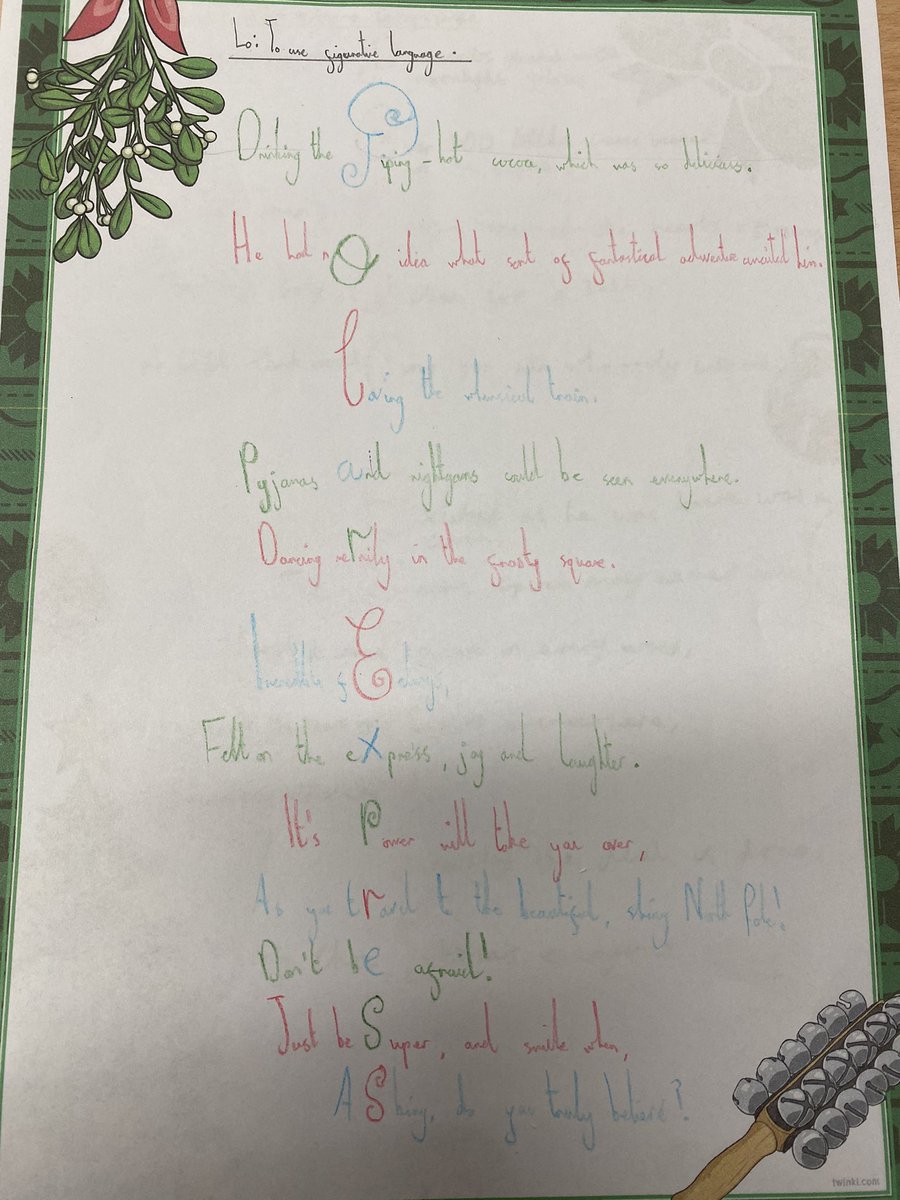 Lo: To use figurative language.
Drinking the Piping-hot cocoa, which was so delicious.
He had nO idea what sort of fantastical adventure awaited him.
Loving the whimsical train.
Pyjamas and nightgowns could be seen everywhere.
Dancing merrily in the frosty square.
Incredible fEelings,
Felt on the eXpress, joy and laughter.
It's Power will take you over,
As you travel to the beautiful, shiny North Pole!
Don't be afraid!
Just be Super, and smile when,
ASking, do you truly believe?
twinkl.com